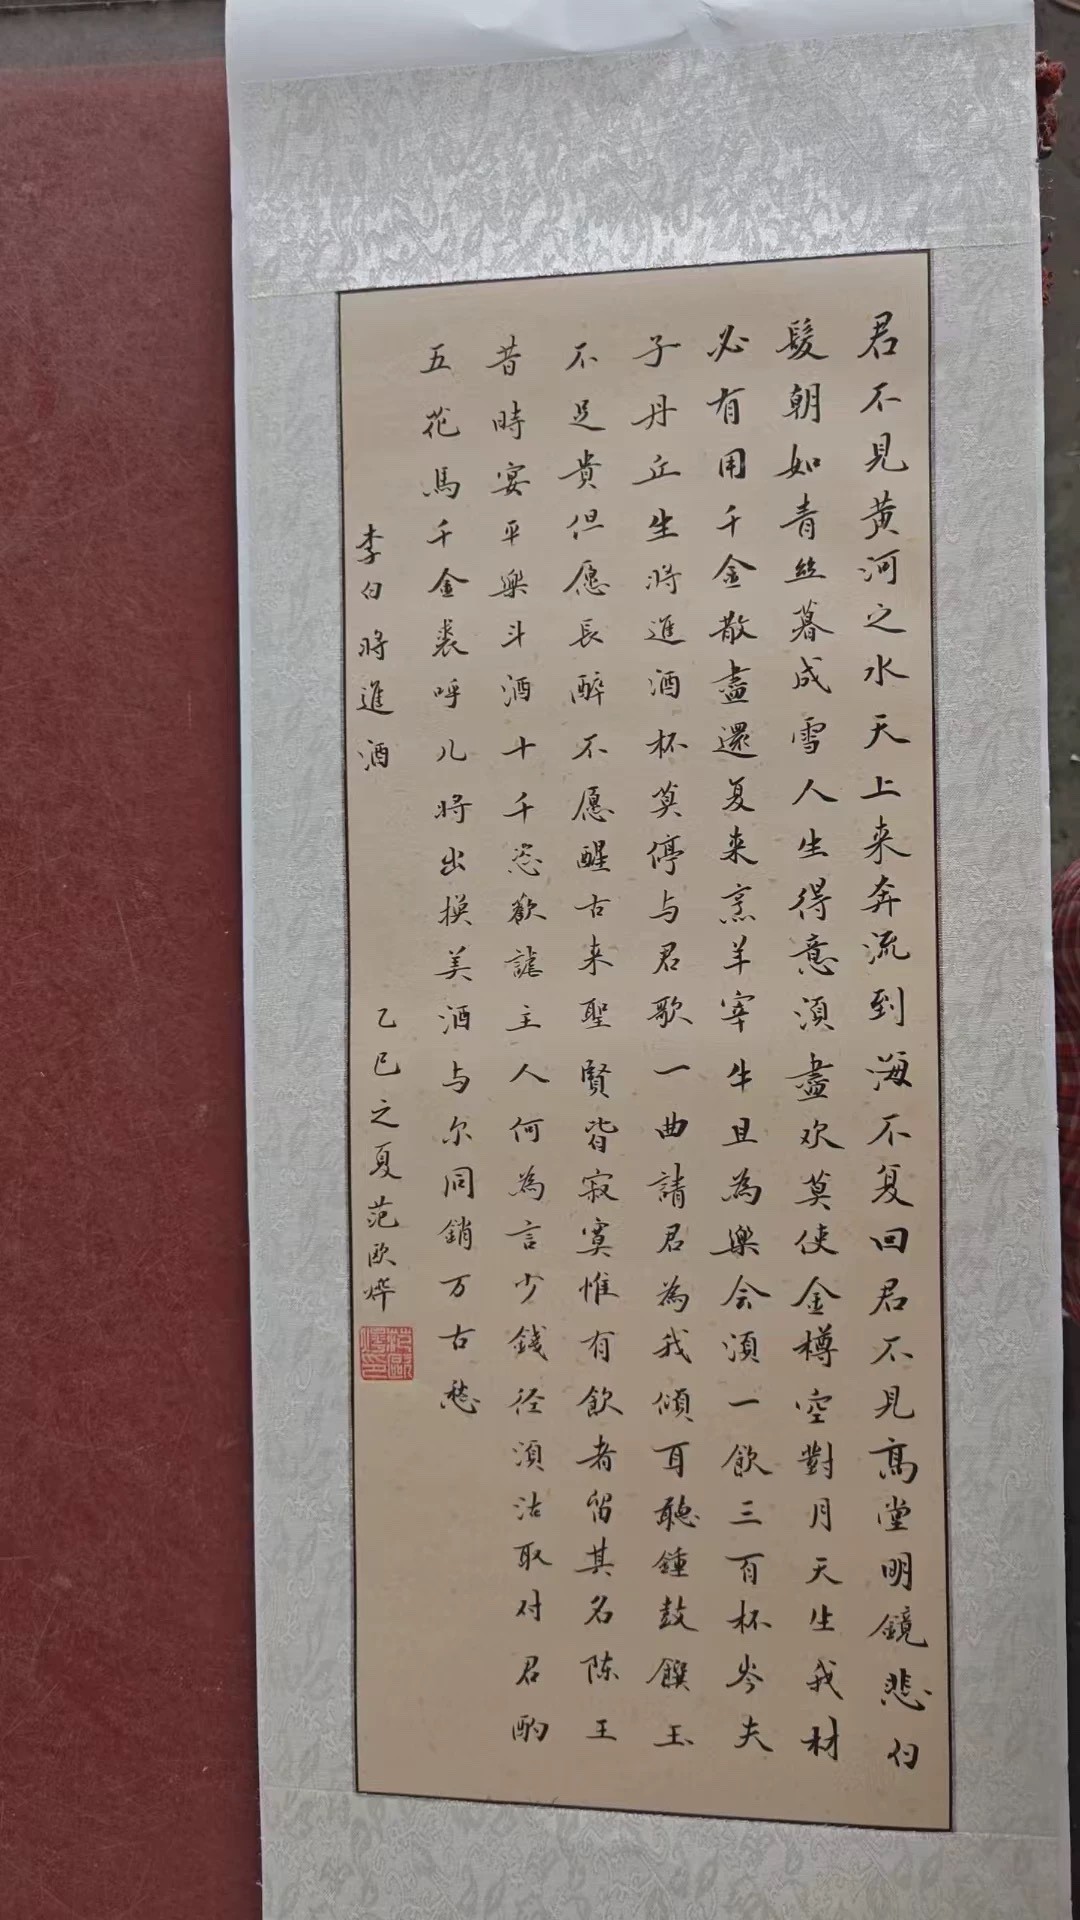 君不見黄河之水天上来奔流到海不复回君不見高堂明鏡悲白
髮朝如青丝暮成雪人生得意須盡欢莫使金樽空對月天生我材
必有用千金散盡還复来烹羊宰牛且為樂会須一飲三百杯岑夫
子丹丘生將進酒杯莫停与君歌一曲請君為我傾耳聽鍾鼓饌玉
不足贵但愿長醉不愿醒古来聖賢皆寂寞惟有飲者留其名陈王
昔時宴平樂斗酒十千恣歡謔主人何為言少錢径須沽取对君酌
五花馬千金裘呼儿將出换美酒与尔同銷万古愁
李白將進酒
乙巳之夏范欧烨